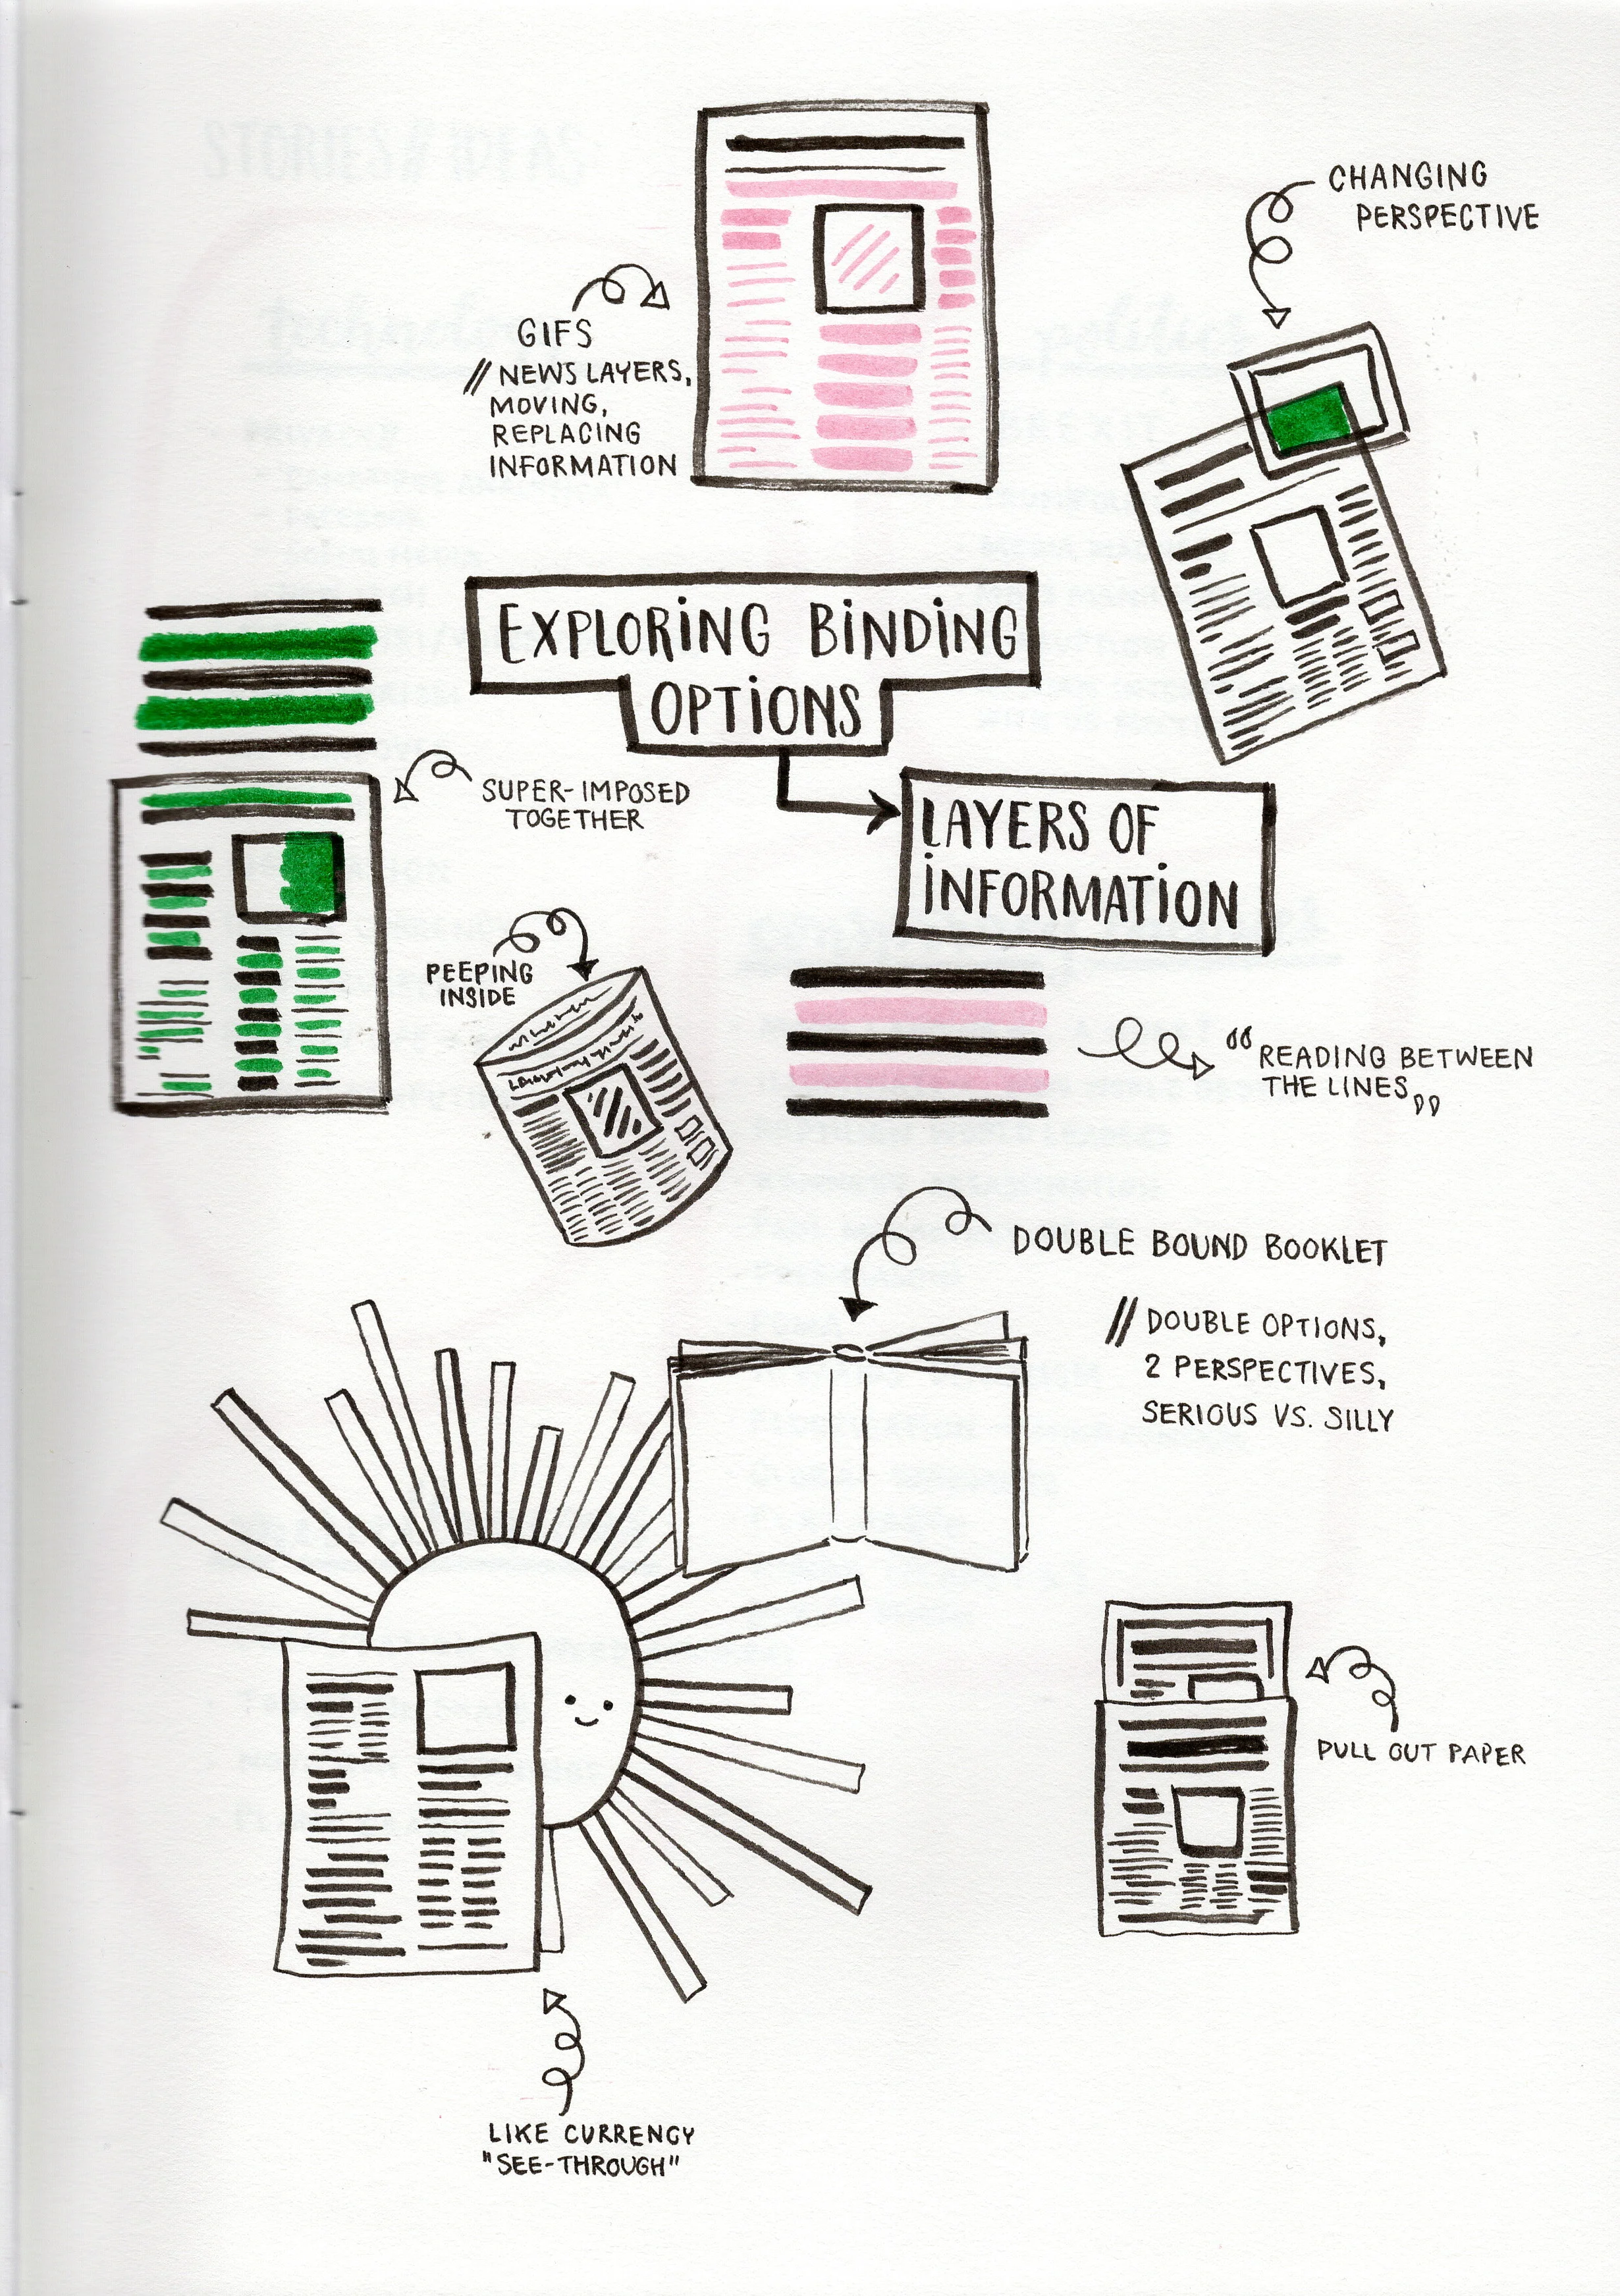 CHANGING
PERSPECTIVE
GIFS
// NEWS LAYERS,
MOVING,
REPLACING
INFORMATION
EXPLORING BINDING
OPTIONS
SUPER-IMPOSED
TOGETHER
LAYERS OF
INFORMATION
PEEPING
INSIDE
“READING BETWEEN
THE LINES„
DOUBLE BOUND BOOKLET
// DOUBLE OPTIONS,
2 PERSPECTIVES,
SERIOUS VS. SILLY
PULL OUT PAPER
LIKE CURRENCY
"SEE-THROUGH"